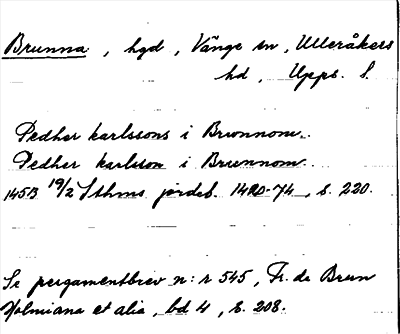 Brunna, hgd, Vänge sn, Ulleråkers
hd, Upps. l.
Pedher karlssons i Brunnom.
Pedher karlsson i Brunnom
1453 19/2 Sthms jordeb. 1420-74, s. 220.
Se pergamentbrev n:r 545, Fr. de Brun
Holmiana et alia, bd 4, s. 208.